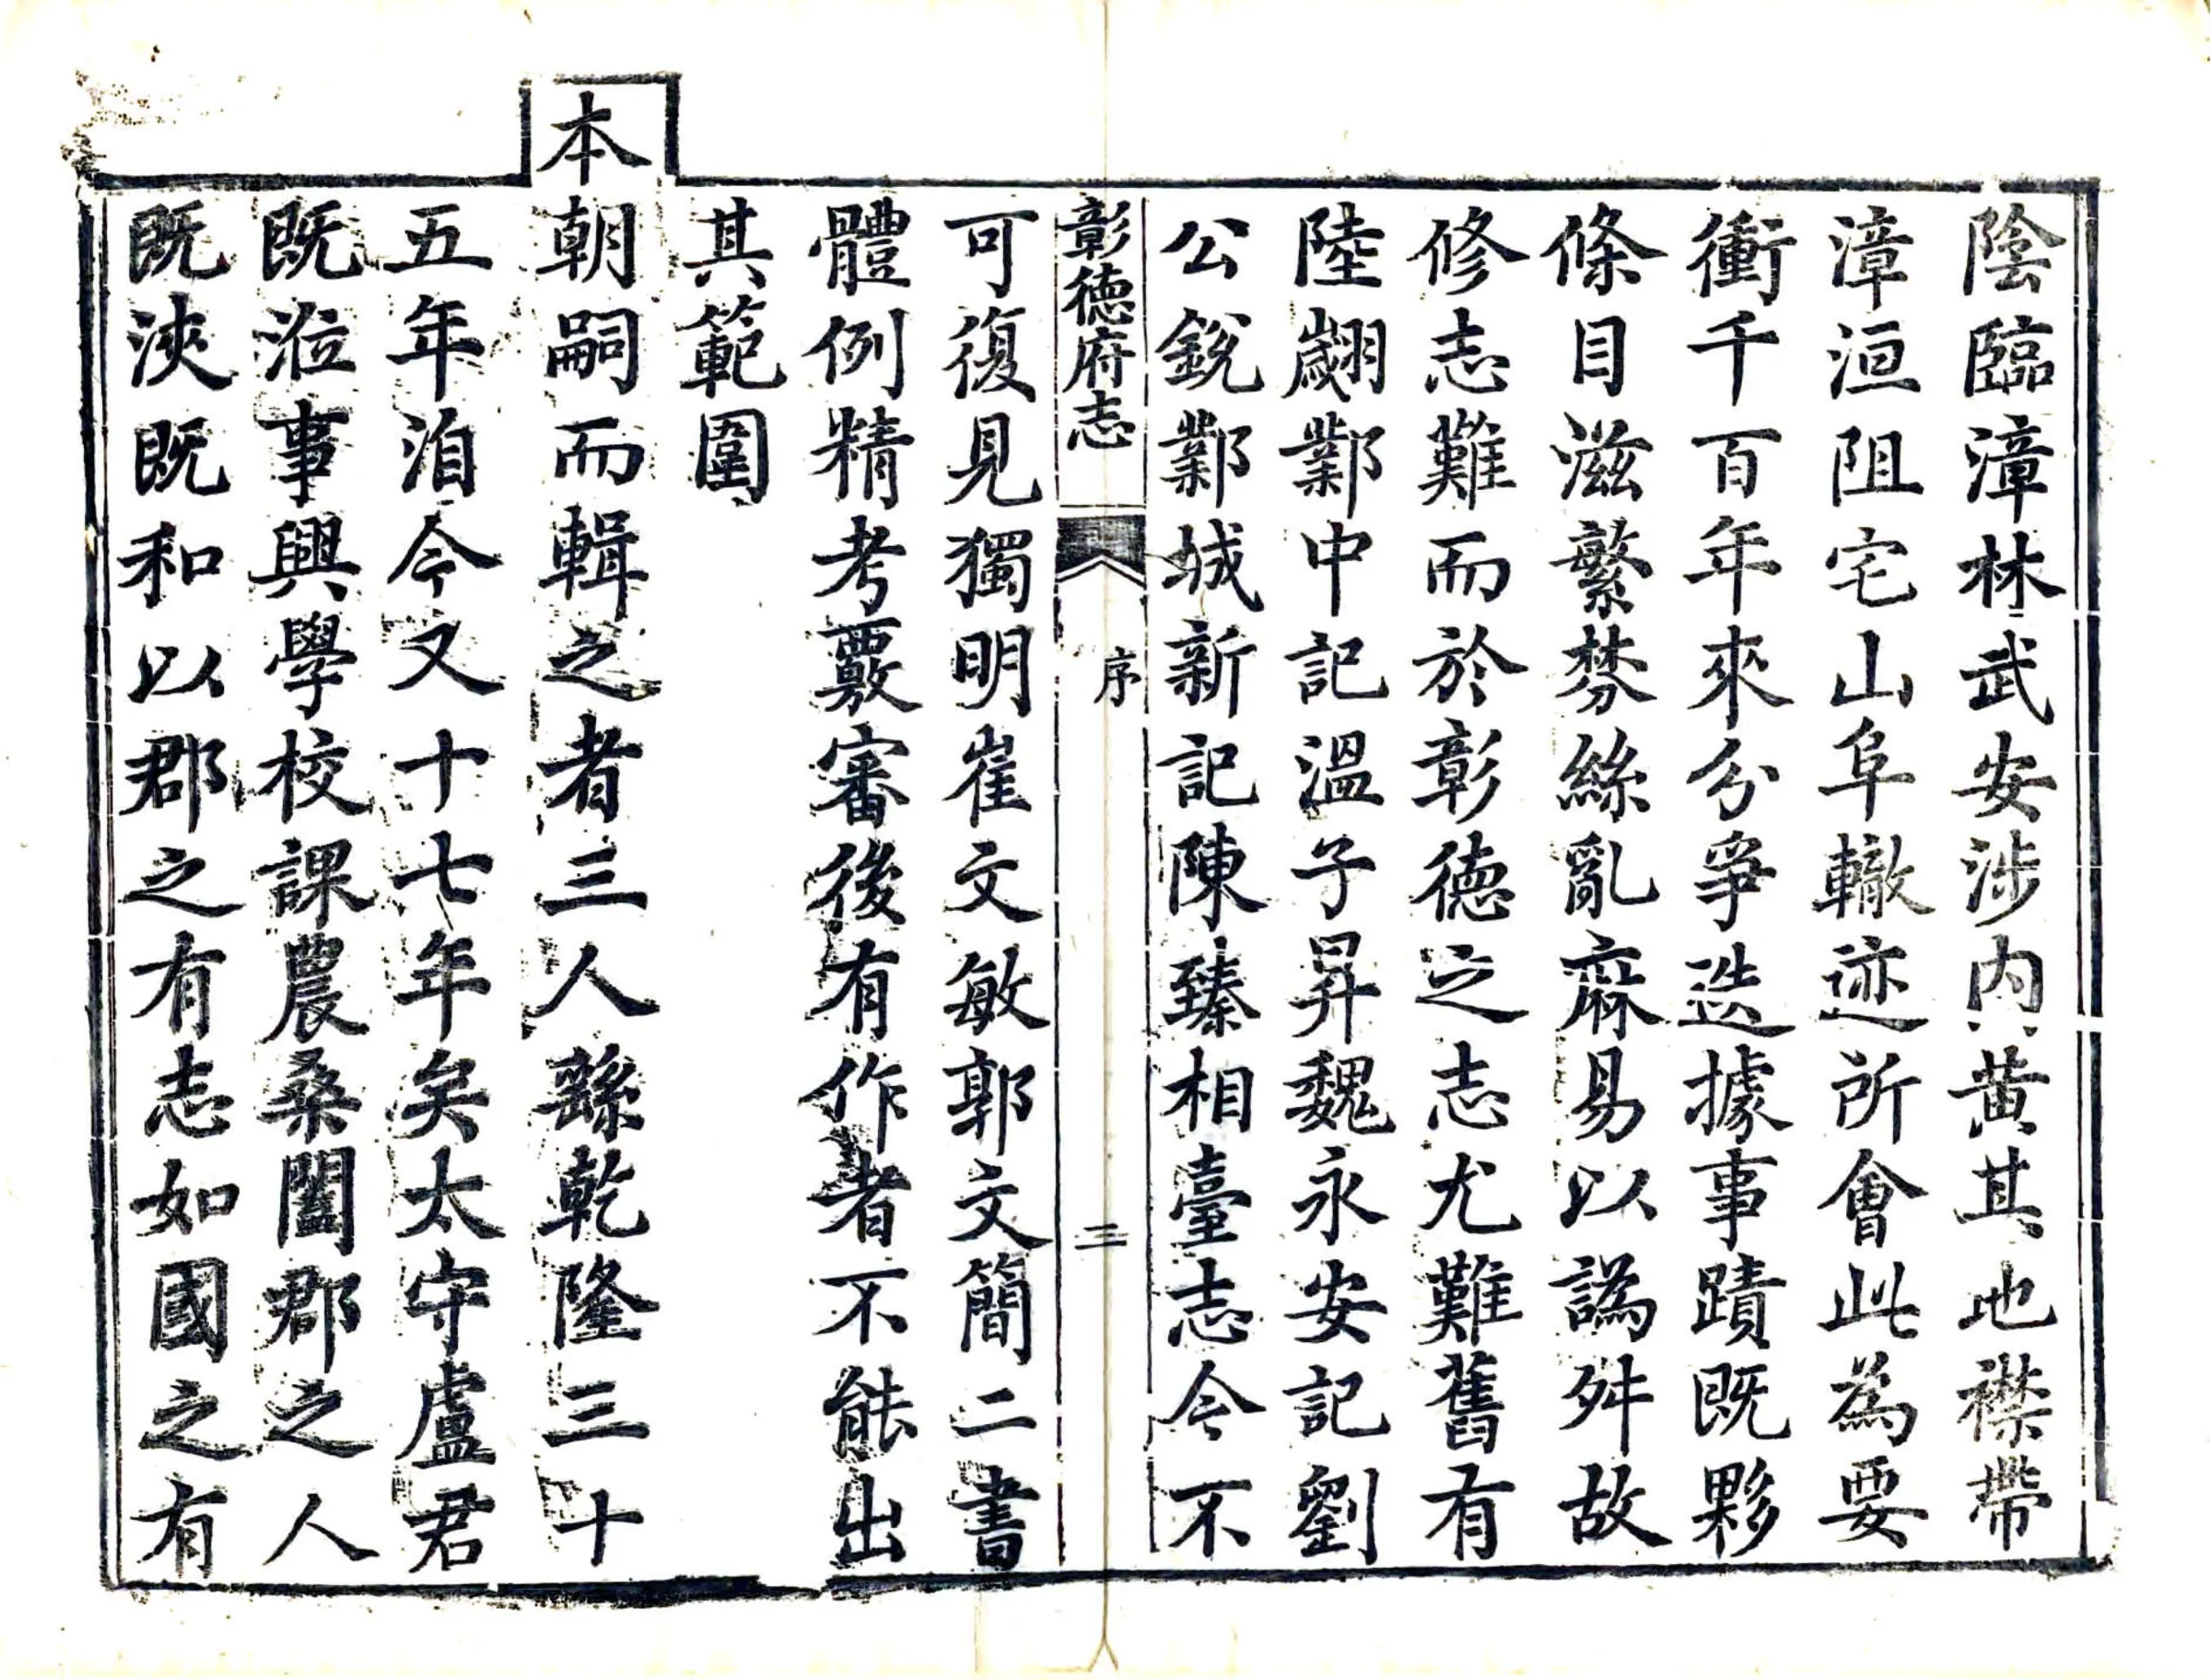 陰臨漳林武安涉内黄其地襟帶
漳洹阻宅山阜轍迹所會此為要
衝千百年來分爭迭據事蹟既夥
條目滋繁棼絲亂麻易以譌舛故
修志難而於彰德之志尤難舊有
陸翽鄴中記溫子昇魏永安記劉
公銳鄴城新記陳臻相臺志今不
彰德府志
序
三
可復見獨明崔文敏郭文簡二書
體例精考覈審後有作者不能出
其範圍
本朝嗣而輯之者三人繇乾隆三十
五年洎今又十七年矣太守盧君
既涖事興學校課農桑闔郡之人
既浹既和以郡之有志如國之有